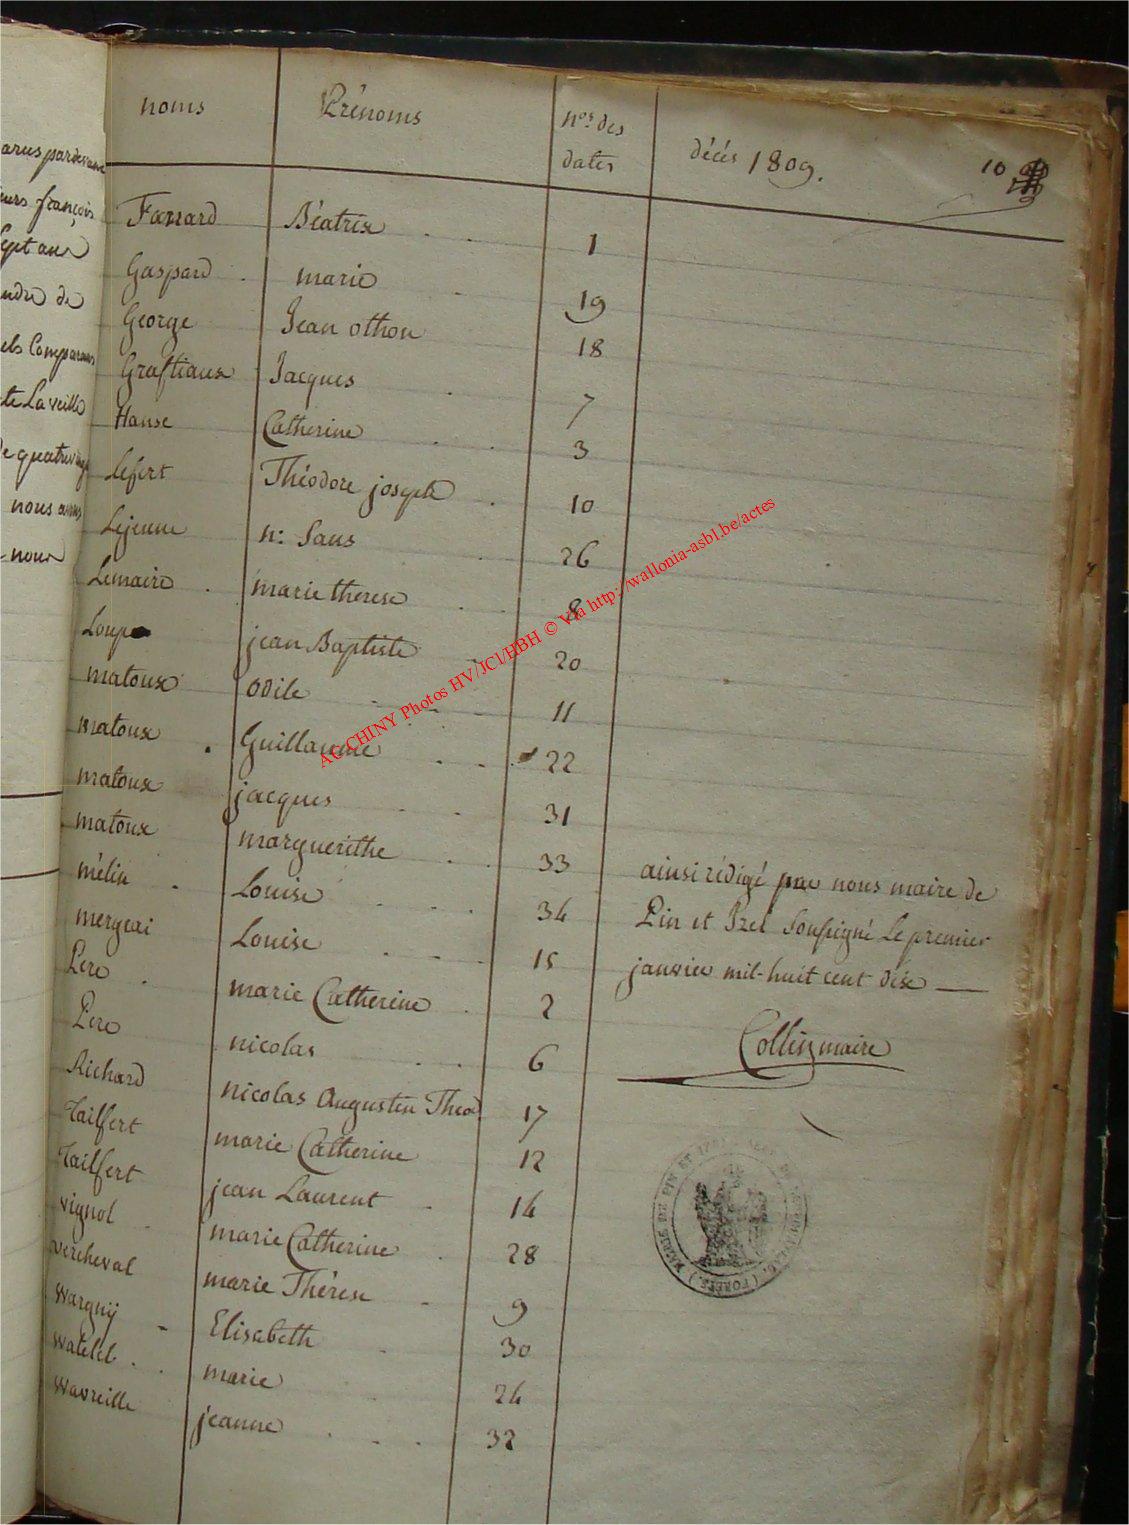 noms Prénoms nos. des dates décès 1809. 10
Fassard Béatrix 1
Gaspard marie 19
George Jean othon 18
Graftiaux Jacques 7
Hanse Catherine 3
Lefert Théodore joseph 10
Lejeune n: Sans 26
Lemaire marie therese 8
Loup jean Baptiste 20
matoux odile 11
matoux Guillaume 22
matoux jacques 31
matoux marguerithe 33
mélin Louise 34
mergeai Louise 15
Pere marie Catherine 2
Pere nicolas 6
Richard nicolas Augustin Theod 17
Tailfert marie Catherine 12
Tailfert jean Laurent 14
vignol marie Catherine 28
vercheval marie Thérese 9
wargnÿ Elisabeth 30
watelet marie 24
wavreille jeanne 32
ainsi rédigé par nous maire de
Pin et Izel Soussigné Le premier
janvier mil-huit cent dix
Collin maire
arus pardevant
françois
Sept ans
de
els Comparans
La veille
de quatrevingt
nous avons
nous
MAIRIE DE PIN ET IZEL (FORETS.)
AGCHINY Photos HV/JCl/HBH © Via http://wallonia-asbl.be/actes